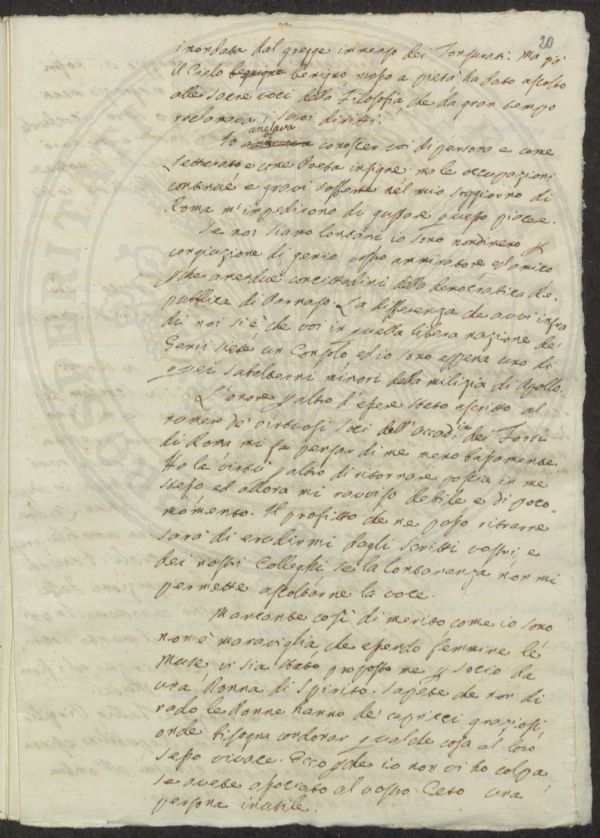 20
inondata dal gregge immenso dei Tonsurati. Ma poi
il Cielo benigno benigno mosso a pietà ha dato ascolto
alle sacre voci della Filosofia, che da gran tempo
reclamava i suoi diritti.
Io anelava conoscer voi di persona e come
Letterato e come Poeta insigne: ma le occupazioni
continue e gravi sofferte nel mio soggiorno di
Roma m'impedirono di gustare questo piacere.
Se noi siamo lontani, io sono nondimeno p
congiazione di genio vostro ammiratore ed amico
p che amendue concittadini della democratica Re-
pubblica di Parnaso. La differenza che avvi infra
di noi si è che voi in quella libera nazione de'
Genii siete un Consolo ed io sono appena uno di
quei subalterni minori della milizia di Apollo.
L'onore p altro d'essere stato ascritto al
numero de' virtuosi soci dell'Accad.ia dei Forti
di Roma mi fa pensar di me meno bassamente.
Ho la virtù p altro di ritornare poscia in me
stesso ed allora mi ravviso debile e di poco
momento. Il profitto che ne posso ritrarre
sarà di erudirmi dagli scritti vostri e
dei nostri Colleghi, se la lontananza non mi
permette ascoltarne la voce.
Mancante così di merito come io sono
non è maraviglia, che essendo femmine le
Muse vi sia stato proposto me p socio da
una Donna di Spirito. Sapete che non di
rado le Donne hanno de' capricci graziosi,
onde bisogna condonar qualche cosa al loro
sesso vivace. Ecco p che io non vi ho colpa
se avete associato al vostro Ceto una
persona inutile.